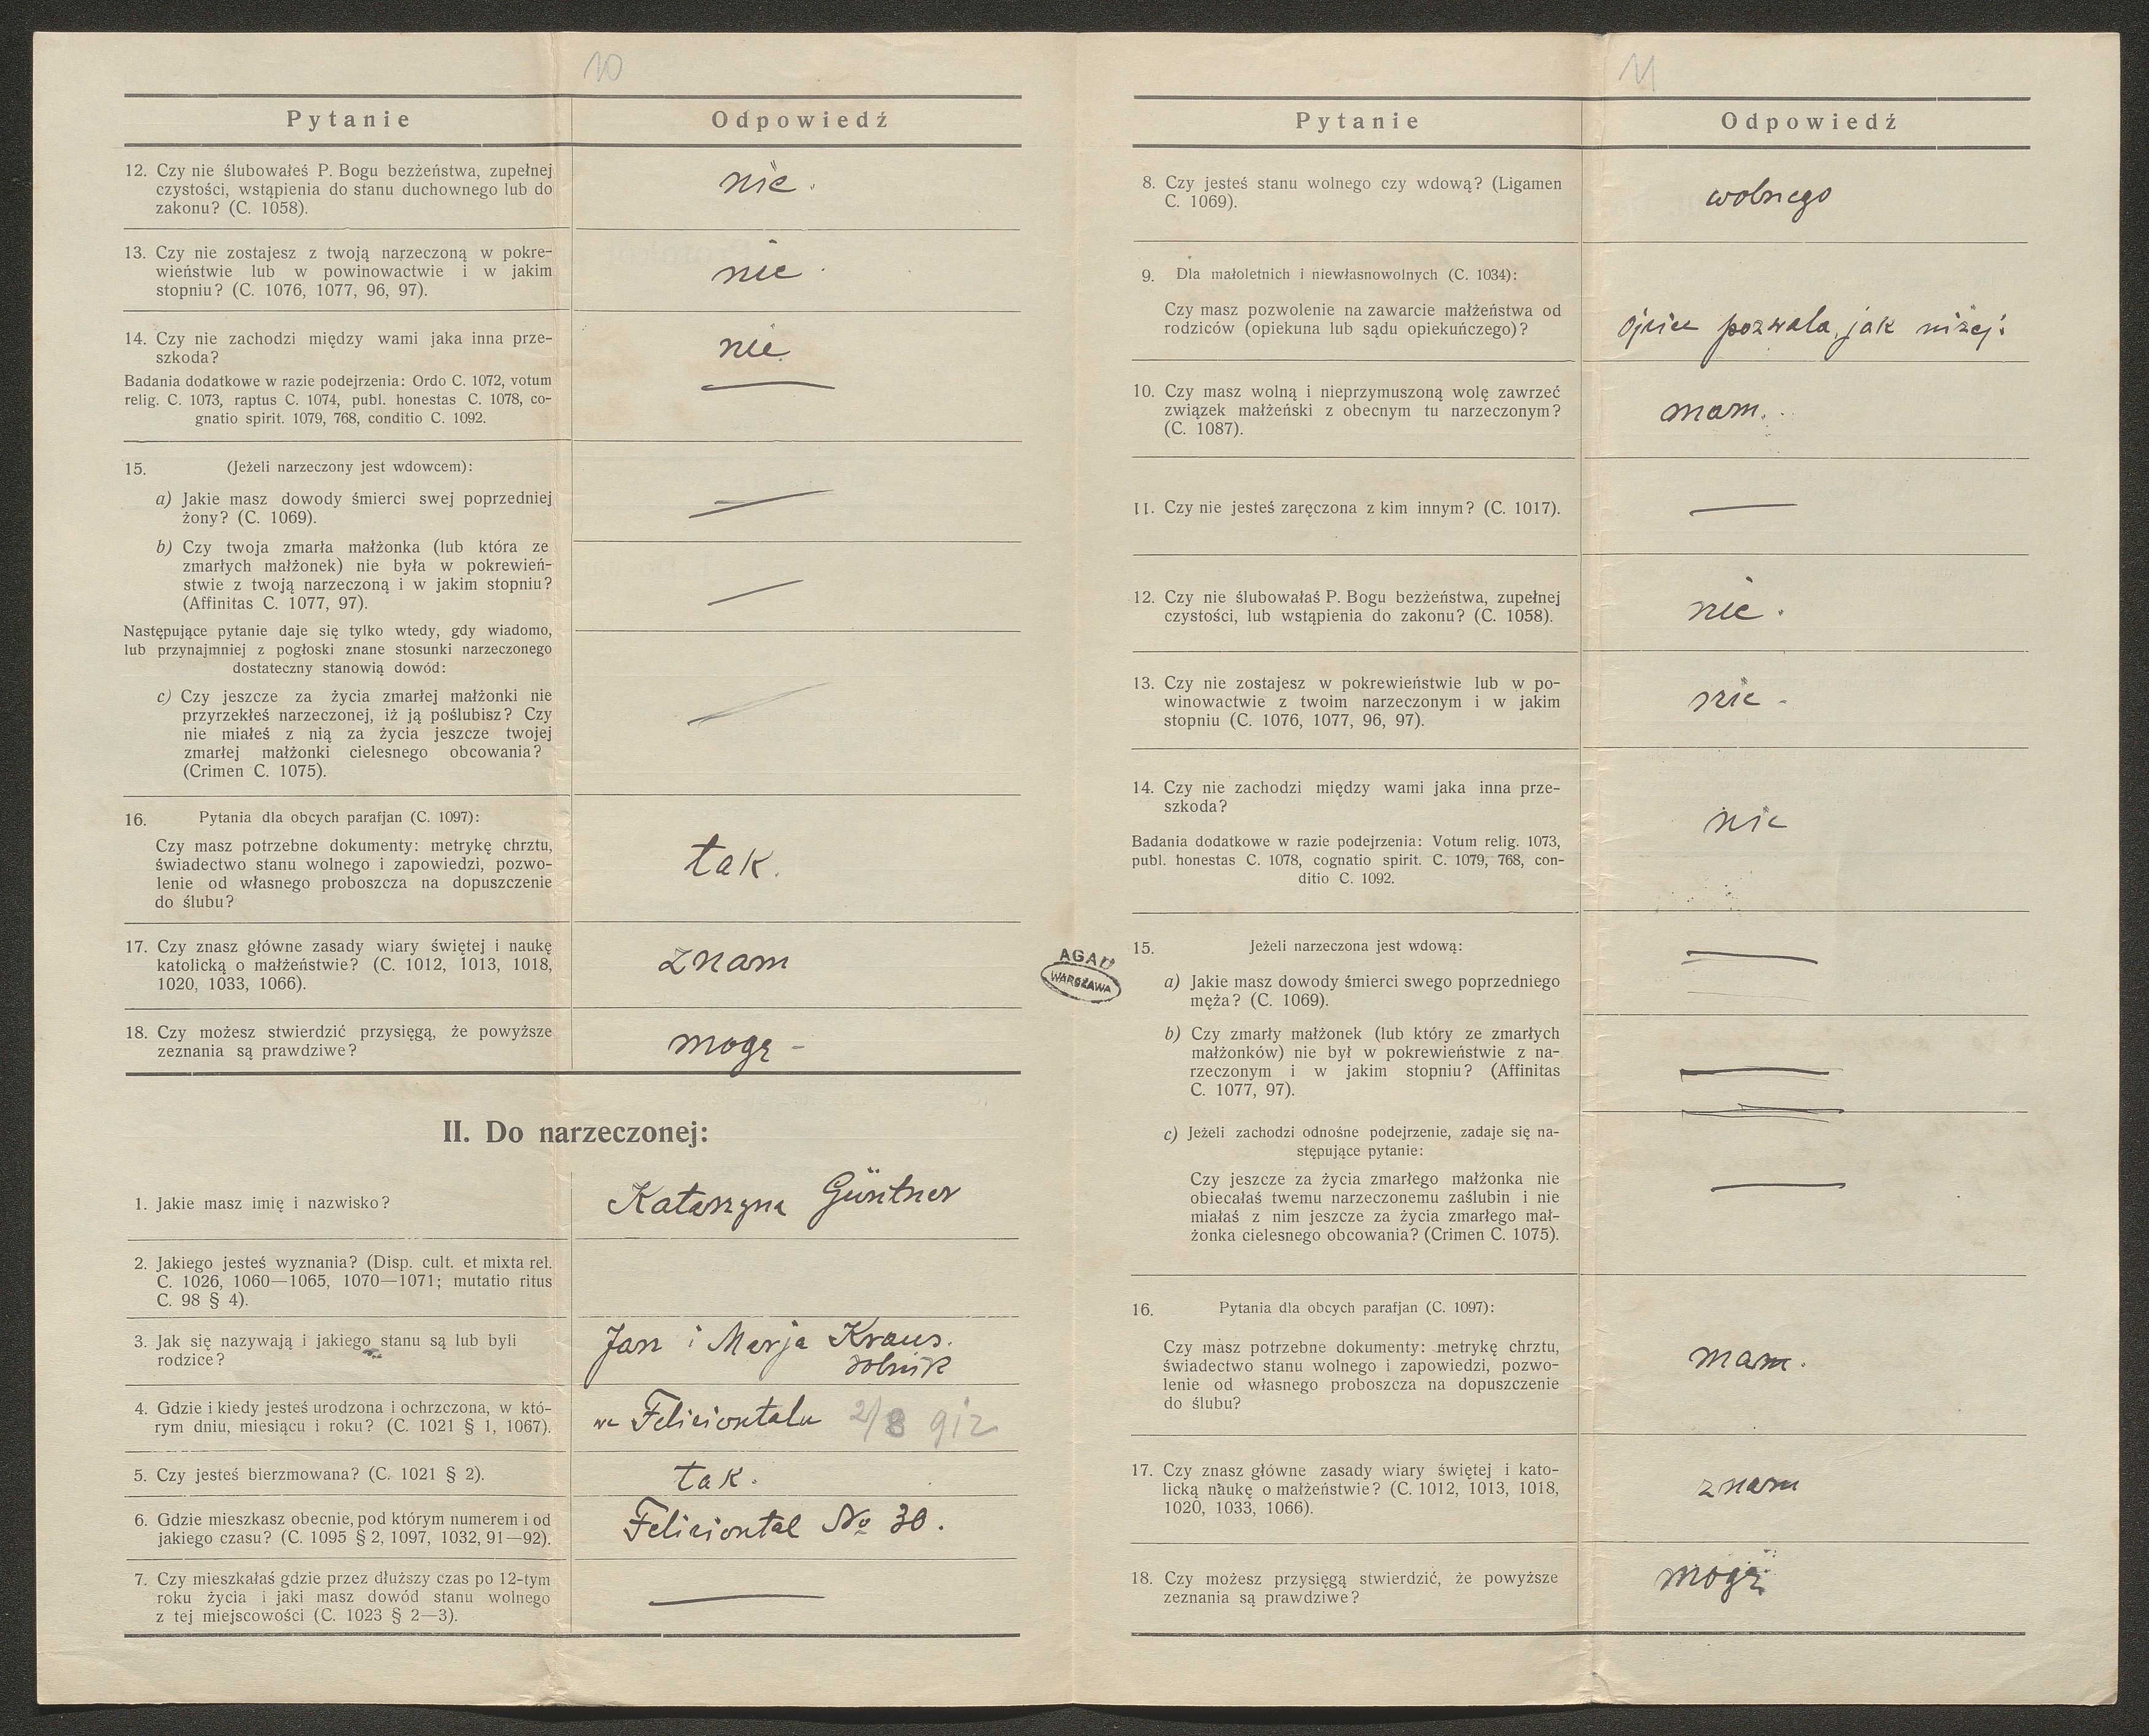 10
Pytanie
Odpowiedź
12. Czy nie ślubowałeś P. Bogu bezżeństwa, zupełnej
czystości, wstąpienia do stanu duchownego lub do
zakonu? (C. 1058).
nie.
13. Czy nie zostajesz z twoją narzeczoną w pokre-
wieństwie lub w powinowactwie i w jakim
stopniu? (C. 1076, 1077, 96, 97).
nie
14. Czy nie zachodzi między wami jaka inna prze-
szkoda?
nie
Badania dodatkowe w razie podejrzenia: Ordo C. 1072, votum
relig. C. 1073, raptus C. 1074, publ. honestas C. 1078, co-
gnatio spirit. 1079, 768, conditio C. 1092.
15. (Jeżeli narzeczony jest wdowcem):
a) Jakie masz dowody śmierci swej poprzedniej
żony? (C. 1069).
b) Czy twoja zmarła małżonka (lub która ze
zmarłych małżonek) nie była w pokrewień-
stwie z twoją narzeczoną i w jakim stopniu?
(Affinitas C. 1077, 97).
Następujące pytanie daje się tylko wtedy, gdy wiadomo,
lub przynajmniej z pogłoski znane stosunki narzeczonego
dostateczny stanowią dowód:
c) Czy jeszcze za życia zmarłej małżonki nie
przyrzekłeś narzeczonej, iż ją poślubisz? Czy
nie miałeś z nią za życia jeszcze twojej
zmarłej małżonki cielesnego obcowania?
(Crimen C. 1075).
16. Pytania dla obcych parafjan (C. 1097):
Czy masz potrzebne dokumenty: metrykę chrztu,
świadectwo stanu wolnego i zapowiedzi, pozwo-
lenie od własnego proboszcza na dopuszczenie
do ślubu?
tak.
17. Czy znasz główne zasady wiary świętej i naukę
katolicką o małżeństwie? (C. 1012, 1013, 1018,
1020, 1033, 1066).
znam
18. Czy możesz stwierdzić przysięgą, że powyższe
zeznania są prawdziwe?
mogę -
II. Do narzeczonej:
1. Jakie masz imię i nazwisko?
Katarzyna Güntner
2. Jakiego jesteś wyznania? (Disp. cult. et mixta rel.
C. 1026, 1060—1065, 1070—1071; mutatio ritus
C. 98 § 4).
3. Jak się nazywają i jakiego stanu są lub byli
rodzice?
Jan i Marja Kraus.
rolnik
4. Gdzie i kiedy jesteś urodzona i ochrzczona, w któ-
rym dniu, miesiącu i roku? (C. 1021 § 1, 1067).
w Felicientalu 2/8 912
5. Czy jesteś bierzmowana? (C. 1021 § 2).
tak.
6. Gdzie mieszkasz obecnie, pod którym numerem i od
jakiego czasu? (C. 1095 § 2, 1097, 1032, 91—92).
Feliciental No 30.
7. Czy mieszkałaś gdzie przez dłuższy czas po 12-tym
roku życia i jaki masz dowód stanu wolnego
z tej miejscowości (C. 1023 § 2—3).
AGAD
WARSZAWA
11
Pytanie
Odpowiedź
8. Czy jesteś stanu wolnego czy wdową? (Ligamen
C. 1069).
wolnego
9. Dla małoletnich i niewłasnowolnych (C. 1034):
Czy masz pozwolenie na zawarcie małżeństwa od
rodziców (opiekuna lub sądu opiekuńczego)?
ojciec pozwala, jak niżej:
10. Czy masz wolną i nieprzymuszoną wolę zawrzeć
związek małżeński z obecnym tu narzeczonym?
(C. 1087).
mam.
11. Czy nie jesteś zaręczona z kim innym? (C. 1017).
12. Czy nie ślubowałaś P. Bogu bezżeństwa, zupełnej
czystości, lub wstąpienia do zakonu? (C. 1058).
nie.
13. Czy nie zostajesz w pokrewieństwie lub w po-
winowactwie z twoim narzeczonym i w jakim
stopniu (C. 1076, 1077, 96, 97).
nie -
14. Czy nie zachodzi między wami jaka inna prze-
szkoda?
nie
Badania dodatkowe w razie podejrzenia: Votum relig. 1073,
publ. honestas C. 1078, cognatio spirit. C. 1079, 768, con-
ditio C. 1092.
15. Jeżeli narzeczona jest wdową:
a) Jakie masz dowody śmierci swego poprzedniego
męża? (C. 1069).
b) Czy zmarły małżonek (lub który ze zmarłych
małżonków) nie był w pokrewieństwie z na-
rzeczonym i w jakim stopniu? (Affinitas
C. 1077, 97).
c) Jeżeli zachodzi odnośne podejrzenie, zadaje się na-
stępujące pytanie:
Czy jeszcze za życia zmarłego małżonka nie
obiecałaś twemu narzeczonemu zaślubin i nie
miałaś z nim jeszcze za życia zmarłego mał-
żonka cielesnego obcowania? (Crimen C. 1075).
16. Pytania dla obcych parafjan (C. 1097):
Czy masz potrzebne dokumenty: metrykę chrztu,
świadectwo stanu wolnego i zapowiedzi, pozwo-
lenie od własnego proboszcza na dopuszczenie
do ślubu?
mam.
17. Czy znasz główne zasady wiary świętej i kato-
licką naukę o małżeństwie? (C. 1012, 1013, 1018,
1020, 1033, 1066).
znam
18. Czy możesz przysięgą stwierdzić, że powyższe
zeznania są prawdziwe?
mogę